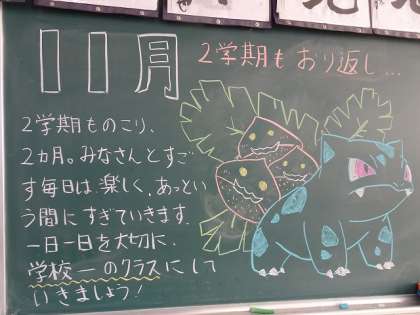 11月
2学期もおり返し...
2学期ものこり、
2カ月。みなさんとすご
す毎日は楽しく、あっとい
う間にすぎていきます。
一日一日を大切に、
学校一のクラスにして
いきましょう!